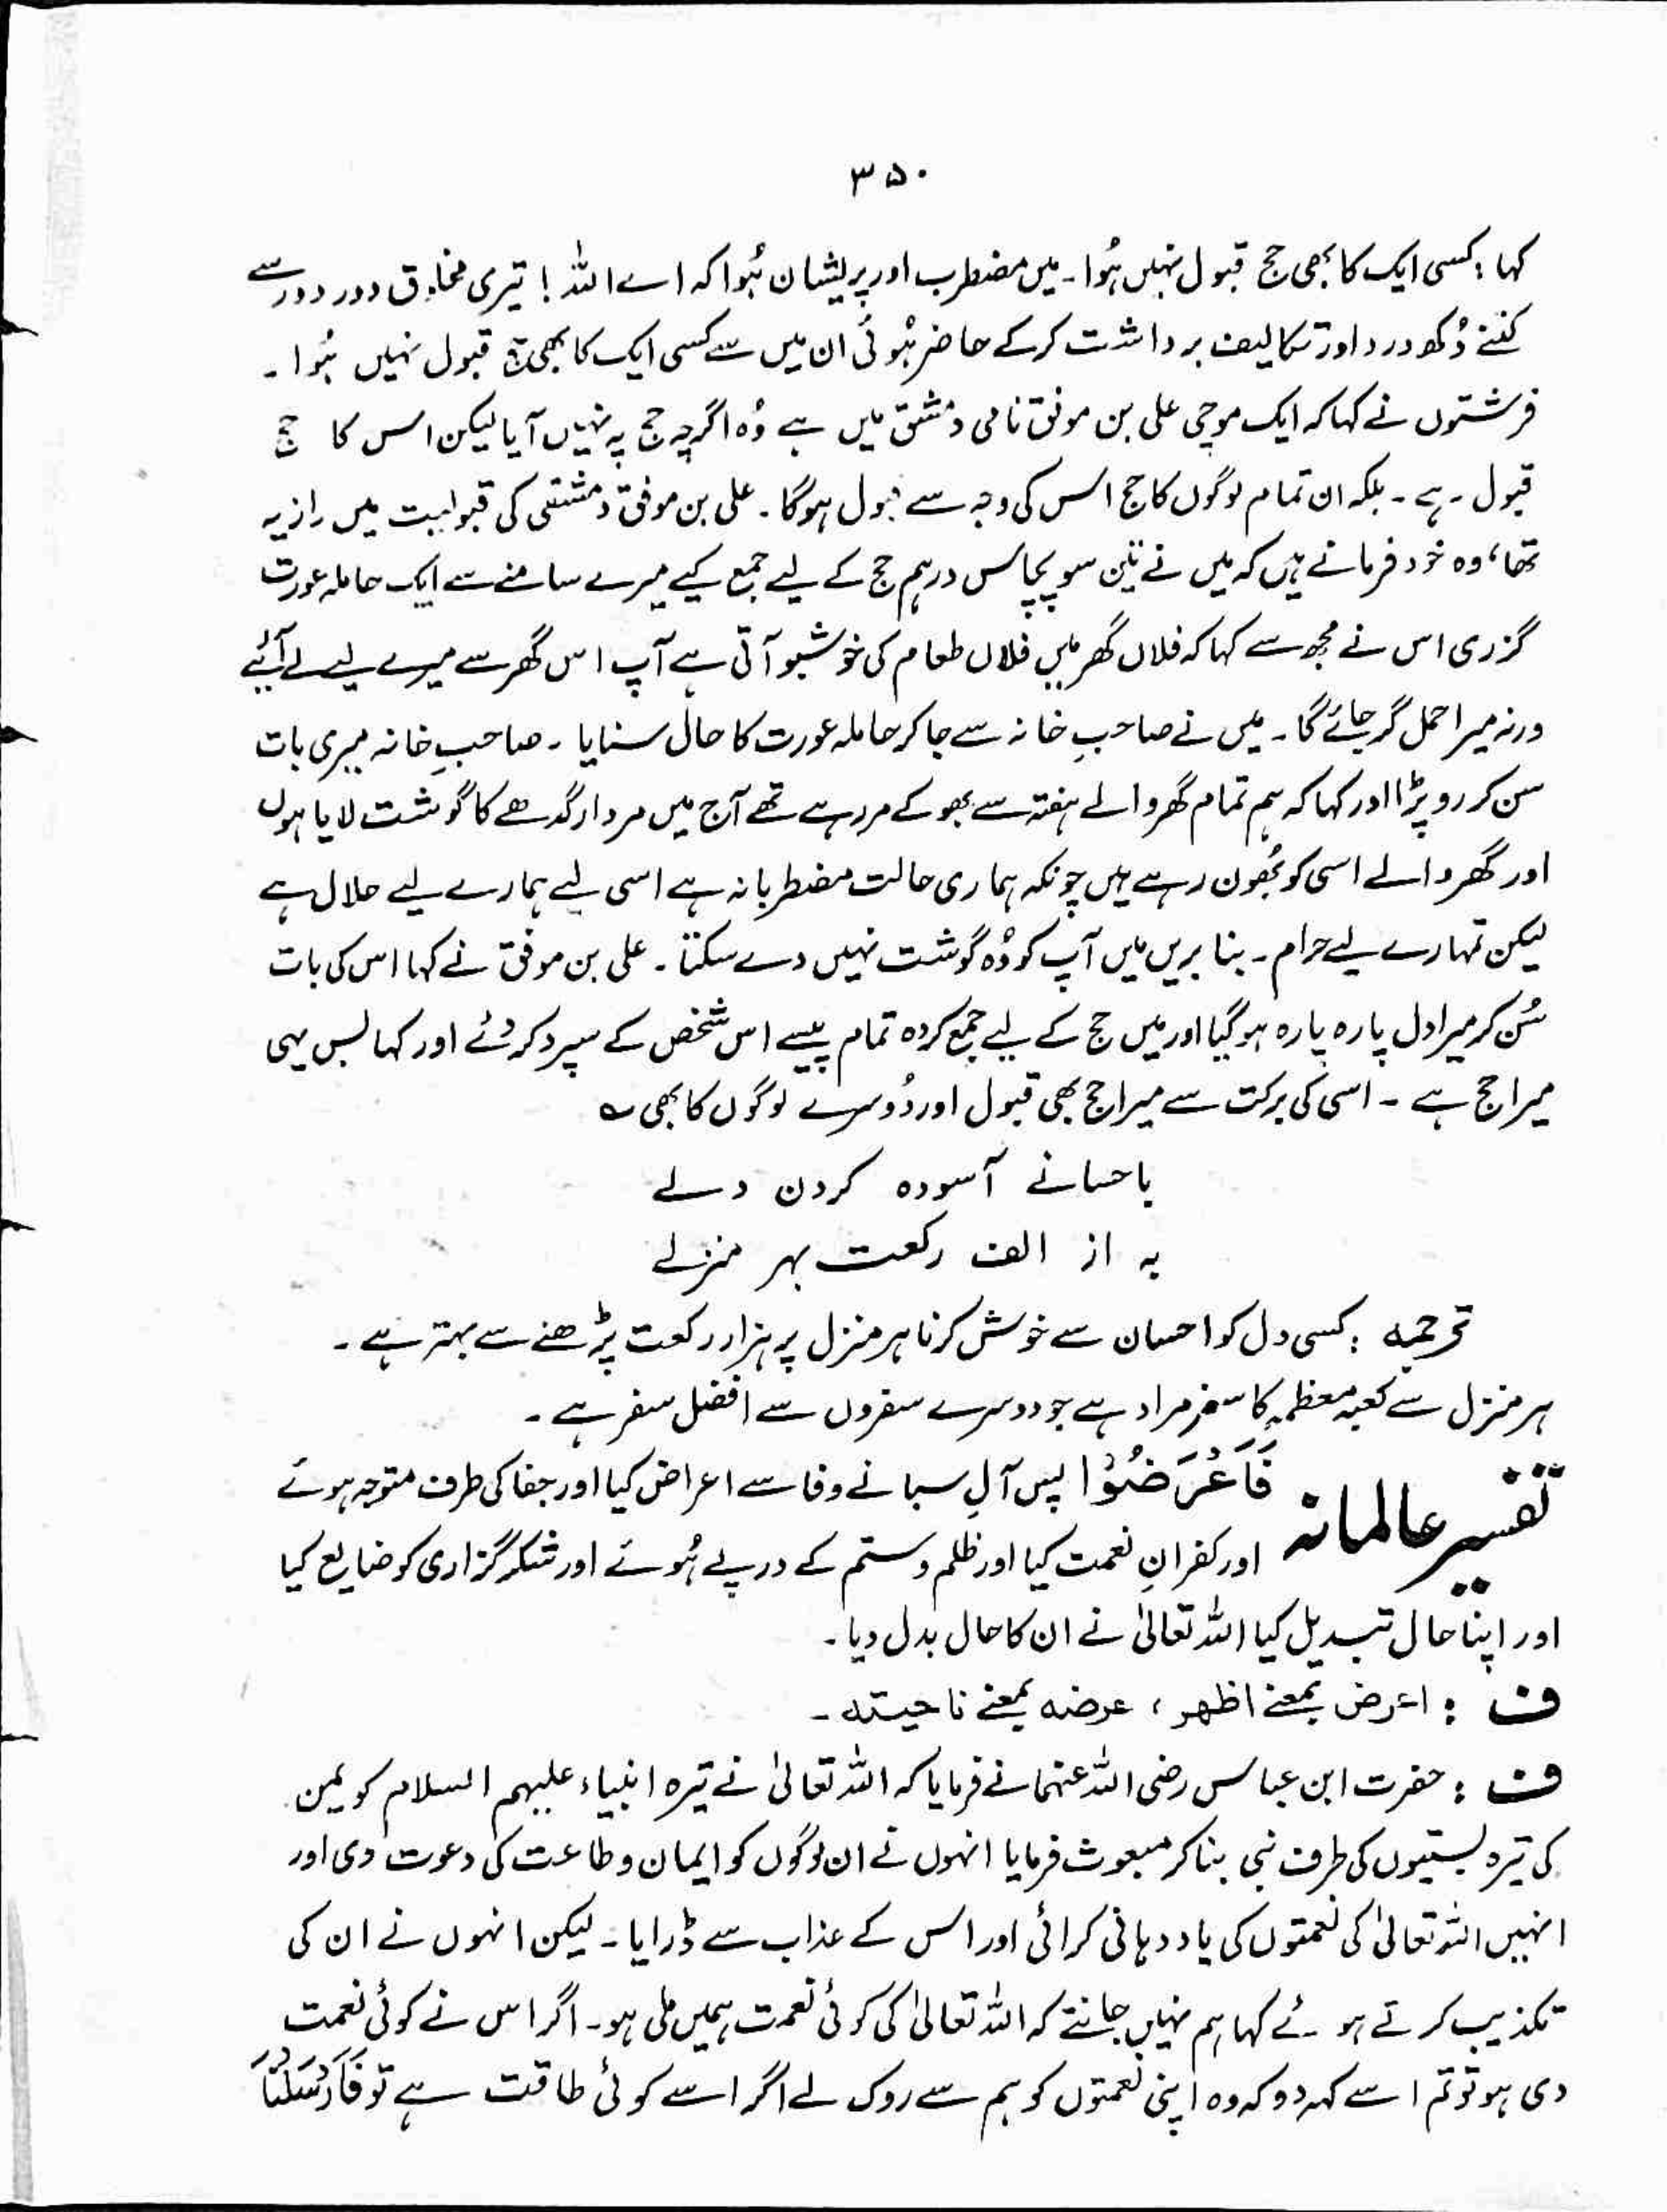 ۳۵۰
کہا: کسی ایک کا بھی حج قبول نہیں ہُوا۔ میں مضطرب اور پریشان ہُوا کہ اے اللہ! تیری مخلوق دور دور سے
کتنے دُکھ درد اور تکالیف برداشت کرکے حاضر ہُوئی ان میں سے کسی ایک کا بھی حج قبول نہیں ہُوا۔
فرشتوں نے کہا کہ ایک موچی علی بن موفق نامی دمشق میں ہے وُہ اگرچہ حج پہ نہیں آیا لیکن اس کا حج
قبول ہے۔ بلکہ ان تمام لوگوں کا حج اس کی وجہ سے قبول ہوگا۔ علی بن موفق دمشقی کی قبولیت میں راز یہ
تھا، وہ خود فرماتے ہیں کہ میں نے تین سو پچاس درہم حج کے لیے جمع کیے میرے سامنے سے ایک حاملہ عورت
گزری اس نے مجھ سے کہا کہ فلاں گھر میں فلاں طعام کی خوشبو آتی ہے آپ اس گھر سے میرے لیے لے آئیے
ورنہ میرا حمل گر جائے گا۔ میں نے صاحبِ خانہ سے جا کر حاملہ عورت کا حال سنایا۔ صاحبِ خانہ میری بات
سن کر رو پڑا اور کہا کہ ہم تمام گھر والے ہفتہ سے بھوکے مر رہے تھے آج میں مردار گدھے کا گوشت لایا ہوں
اور گھر والے اسی کو بُھون رہے ہیں چونکہ ہماری حالت مضطربانہ ہے اسی لیے ہمارے لیے حلال ہے
لیکن تمہارے لیے حرام۔ بنا بریں میں آپ کو وُہ گوشت نہیں دے سکتا۔ علی بن موفق نے کہا اس کی بات
سُن کر میرا دل پارہ پارہ ہو گیا اور میں حج کے لیے جمع کردہ تمام پیسے اس شخص کے سپرد کر دئے اور کہا بس یہی
میرا حج ہے۔ اسی کی برکت سے میرا حج بھی قبول اور دُوسرے لوگوں کا بھی ؎
باحسانے آسودہ کردن دلے
بہ از الف رکعت بہر منزلے
ترجمہ: کسی دل کو احسان سے خوش کرنا ہر منزل پر ہزار رکعت پڑھنے سے بہتر ہے۔
ہر منزل سے کعبہ معظمہ کا سفر مراد ہے جو دوسرے سفروں سے افضل سفر ہے۔
تفسیر عالمانہ فَاَعْرَضُوْا پس آلِ سبا نے وفا سے اعراض کیا اور جفا کی طرف متوجہ ہوئے
اور کفرانِ نعمت کیا اور ظلم و ستم کے درپے ہُوئے اور شکر گزاری کو ضایع کیا
اور اپنا حال تبدیل کیا اللہ تعالیٰ نے ان کا حال بدل دیا۔
ف: اعرض بمعنے اظھر، عرضہ بمعنے ناحیتہ۔
ف: حضرت ابن عباس رضی اللہ عنہما نے فرمایا کہ اللہ تعالیٰ نے تیرہ انبیاء علیہم السلام کو یمن
کی تیرہ بستیوں کی طرف نبی بنا کر مبعوث فرمایا انہوں نے ان لوگوں کو ایمان و طاعت کی دعوت دی اور
انہیں اللہ تعالیٰ کی نعمتوں کی یاددہانی کرائی اور اس کے عذاب سے ڈرایا۔ لیکن انہوں نے ان کی
تکذیب کرتے ہوئے کہا ہم نہیں جانتے کہ اللہ تعالیٰ کی کوئی نعمت ہمیں ملی ہو۔ اگر اس نے کوئی نعمت
دی ہو تو تم اسے کہہ دو کہ وہ اپنی نعمتوں کو ہم سے روک لے اگر اسے کوئی طاقت ہے تو فَاَرْسَلْنَا